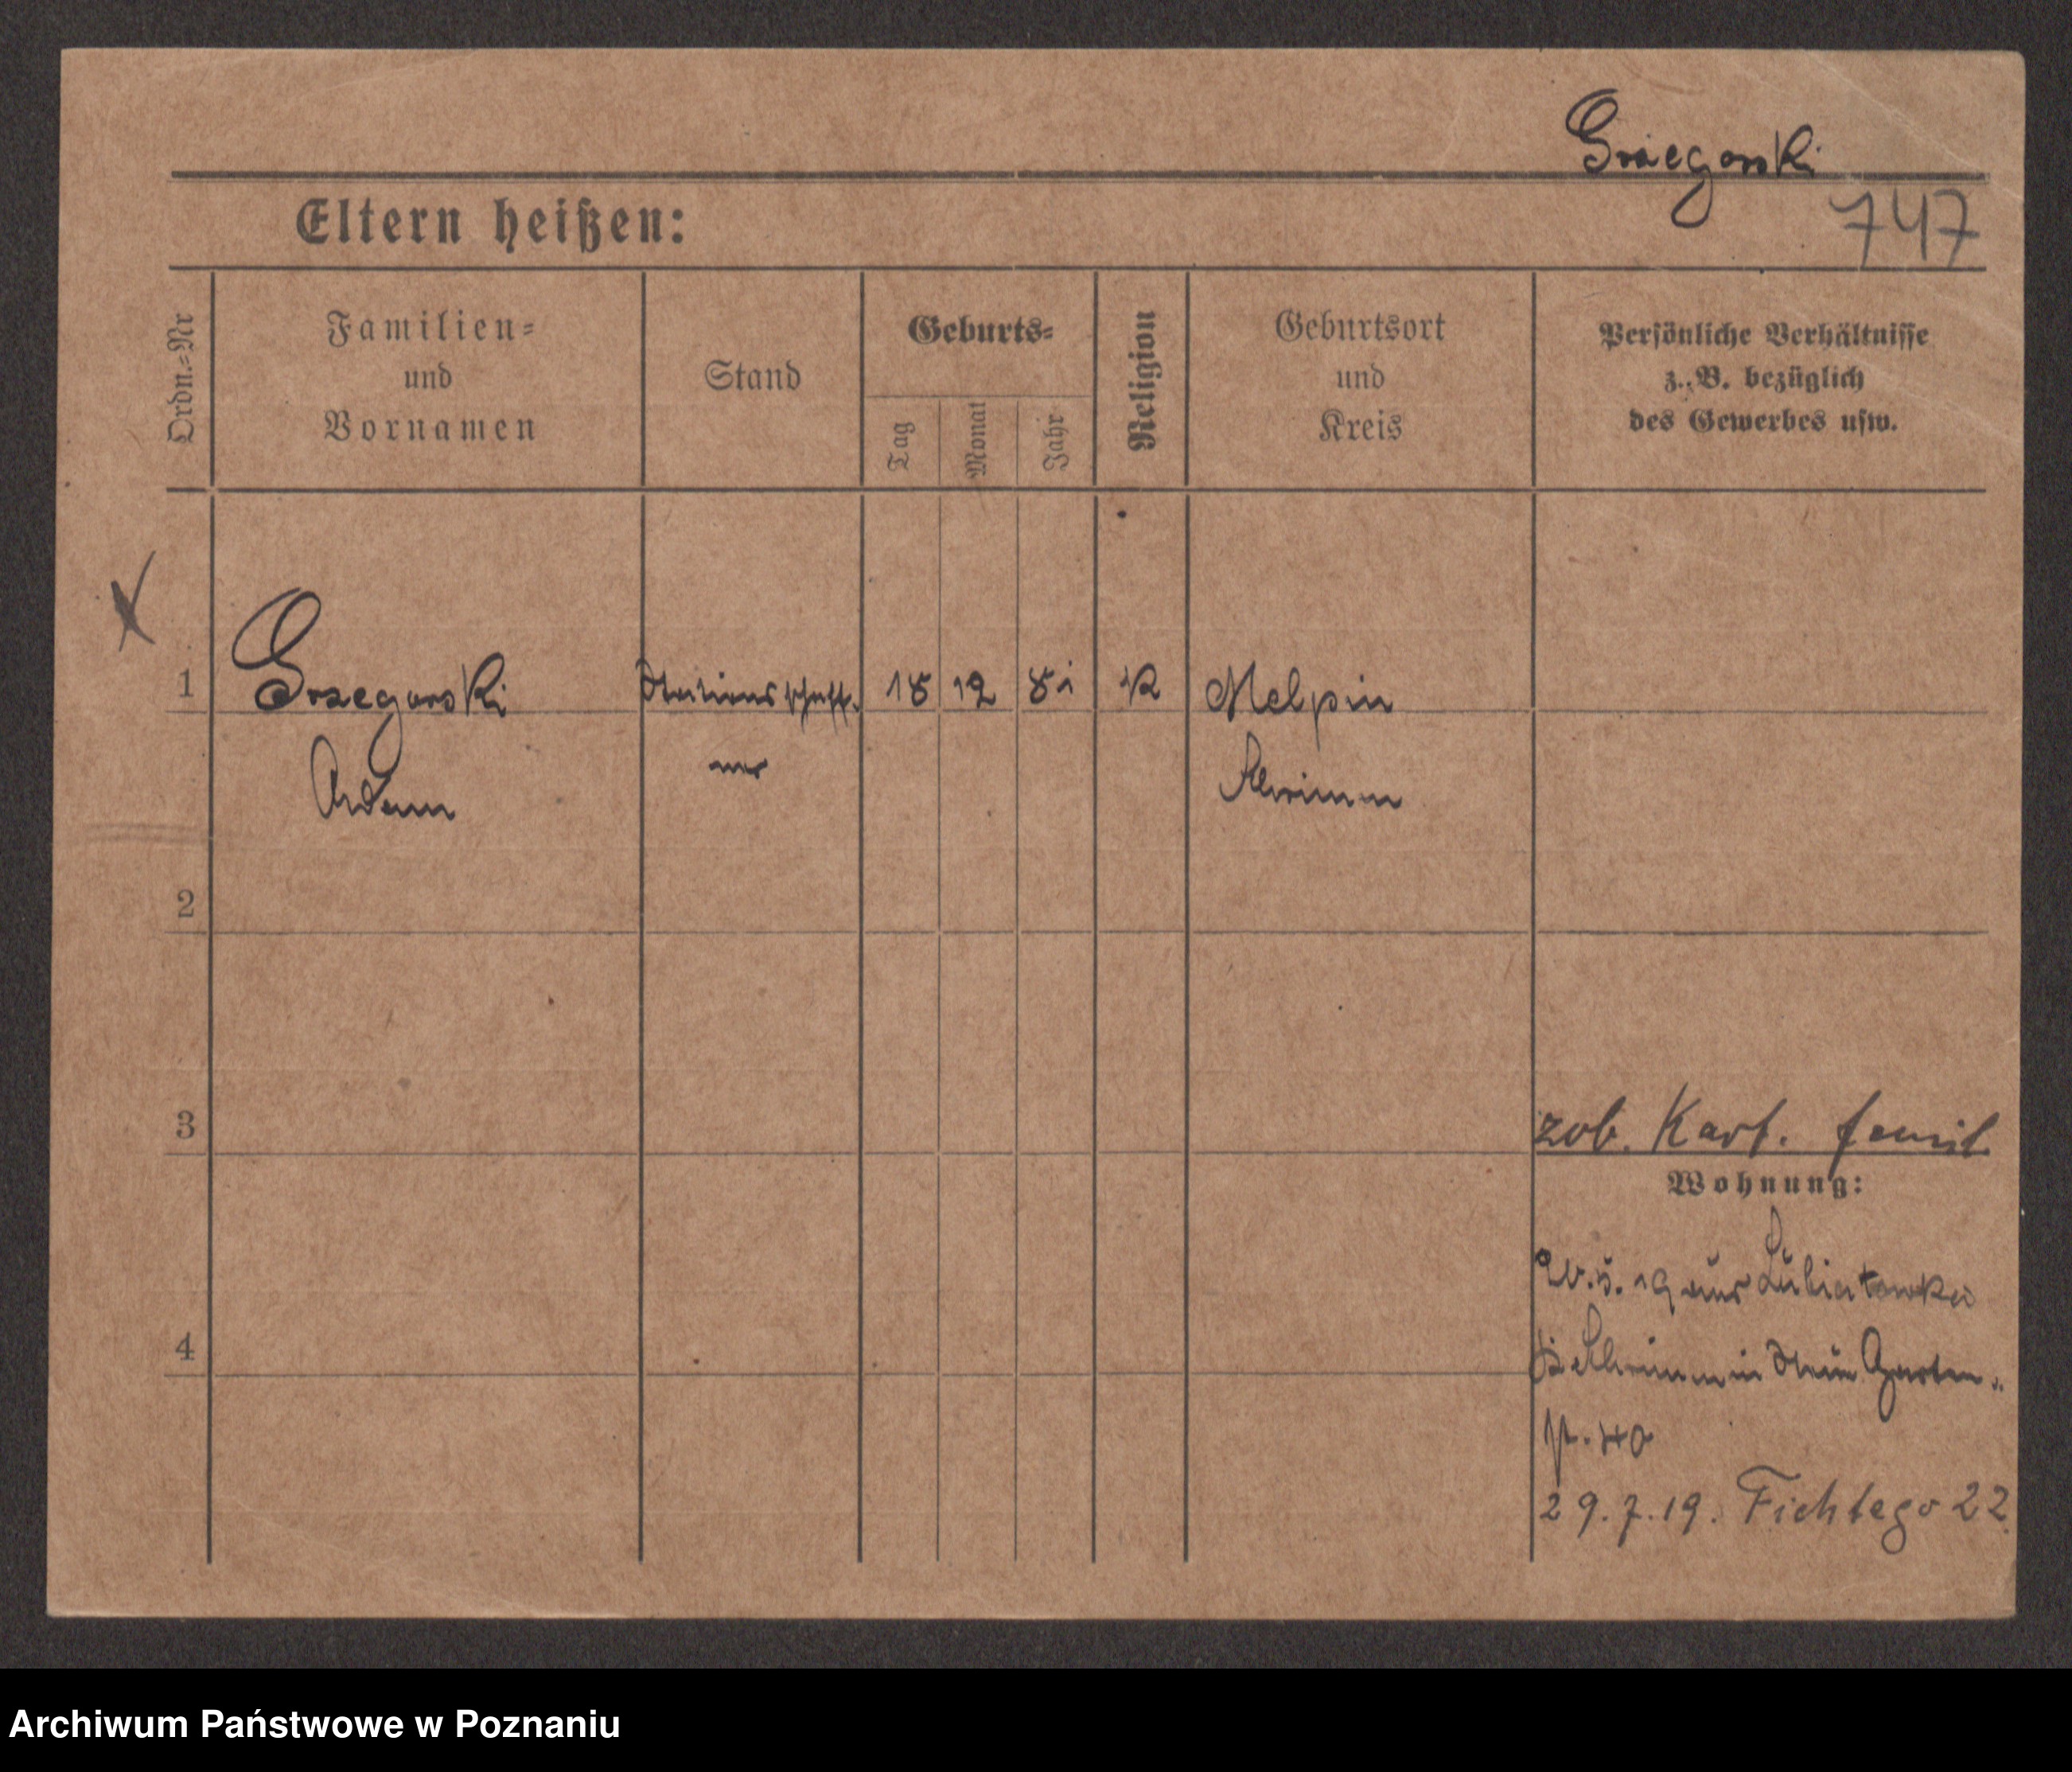 Grzegorski
747
Eltern heißen:
Ordn.-Nr
Familien-
und
Vornamen
Stand
Geburts-
Tag
Monat
Jahr
Religion
Geburtsort
und
Kreis
Persönliche Verhältnisse
z. B. bezüglich
des Gewerbes usw.
1
Grzegorski
Adam
Stationsschaff-
ner
18
12
81
K
Melpin
Schrimm
2
3
4
zob. Kart. famil.
Wohnung:
19 aus Lubiatowko
Schrimm in Garten-
29.7.19. Fichtego 22
Archiwum Państwowe w Poznaniu